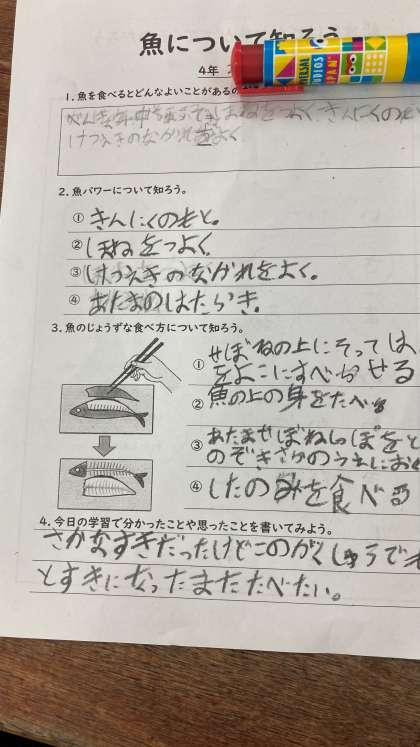 魚について知ろう
4年
1.魚を食べるとどんなよいことがあるの
ほねをつよく、きんにくのも
けつえきのながれをよく
2.魚パワーについて知ろう。
①きんにくのもと。
②ほねをつよく
③けつえきのながれをよく。
④あたまのはたらき。
3.魚のじょうずな食べ方について知ろう。
①せぼねの上にそっては
をよこにすべらせる
②魚の上の身をたべる
③あたませぼねしっぽをと
のぞきさかのうえにおく
④したのみを食べる
4.今日の学習で分かったことや思ったことを書いてみよう。
さかなすきだったけどこのがくしゅうでも
とすきになったまたたべたい。
UNIVERSAL
STUDIOS
JAPAN